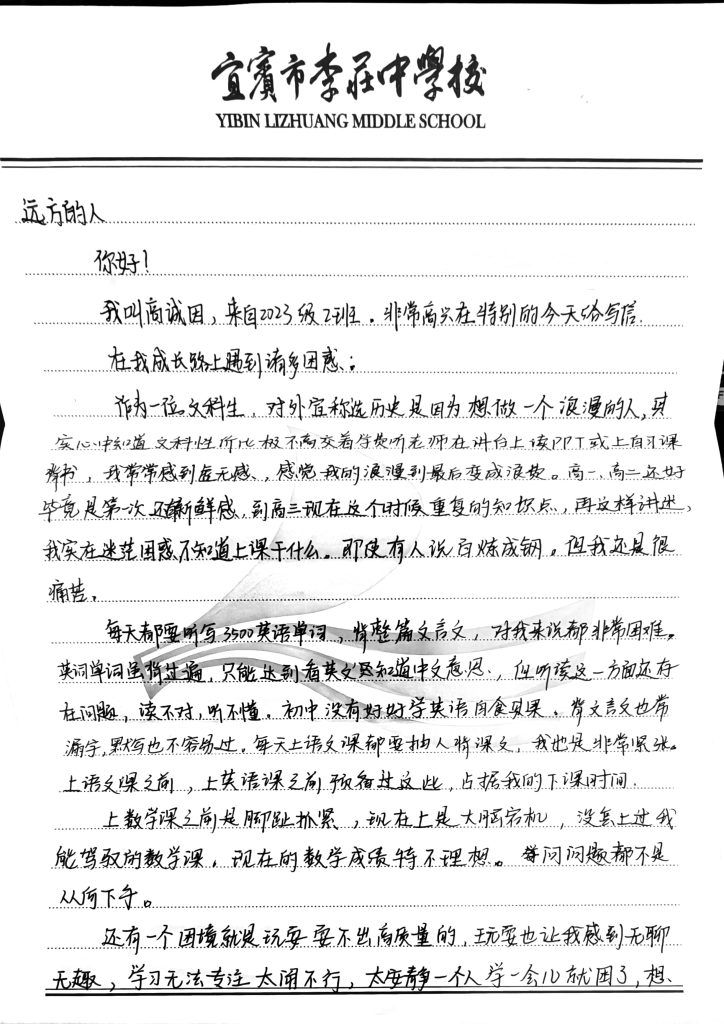 宜賓市李莊中學校
YIBIN LIZHUANG MIDDLE SCHOOL
远方的人
你好！
我叫高诚因，来自2023级2班。非常高兴在特别的今天给写信.
在我成长路上遇到诸多困惑：
作为一位文科生，对外宣称选历史是因为想做一个浪漫的人，其
实心中知道文科性价比极不高交着学费听老师在讲台上读PPT或上自习课
背书，我常常感到虚无感、感觉我的浪漫到最后变成浪费。高一、高二还好
毕竟是第一次还新鲜感，到高三现在这个时候重复的知识点，再这样讲述，
我实在迷茫困惑不知道上课干什么。即使有人说百炼成钢。但我还是很
痛苦。
每天都要听写3500英语单词，背整篇文言文，对我来说都非常困难。
英词单词虽背过遍，只能达到看英文知道中文意思、但听读这一方面还存
在问题，读不对，听不懂。初中没有好好学英语自食其果。背文言文也常
漏字，默写也不容易过。每天上语文课都要抽人背课文，我也是非常紧张。
上语文课之前，上英语课之前预备过这些，占据我的下课时间.
上数学课之前是脚趾抓紧，现在上是大脑宕机，没套上过我
能驾驭的数学课，现在的数学成绩特不理想。每问问题都不是
从何下手。
还有一个困境就是玩耍耍不出高质量的，玩耍也让我感到无聊
无趣，学习无法专注太闹不行，太安静一个人学一会儿就困了，想、